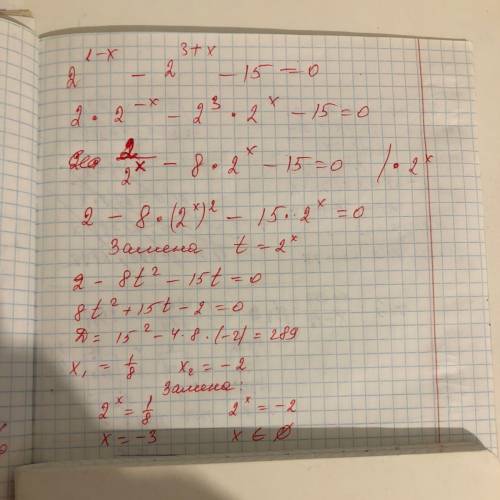 2^{1-x} - 2^{3+x} - 15 = 0
2 · 2^{-x} - 2^3 · 2^x - 15 = 0
2/2^x - 8 · 2^x - 15 = 0 /· 2^x
2 - 8 · (2^x)^2 - 15 · 2^x = 0
Замена t = 2^x
2 - 8t^2 - 15t = 0
8t^2 + 15t - 2 = 0
D = 15^2 - 4 · 8 · (-2) = 289
x_1 = 1/8 x_2 = -2
Замена:
2^x = 1/8 2^x = -2
x = -3 x ∈ ∅